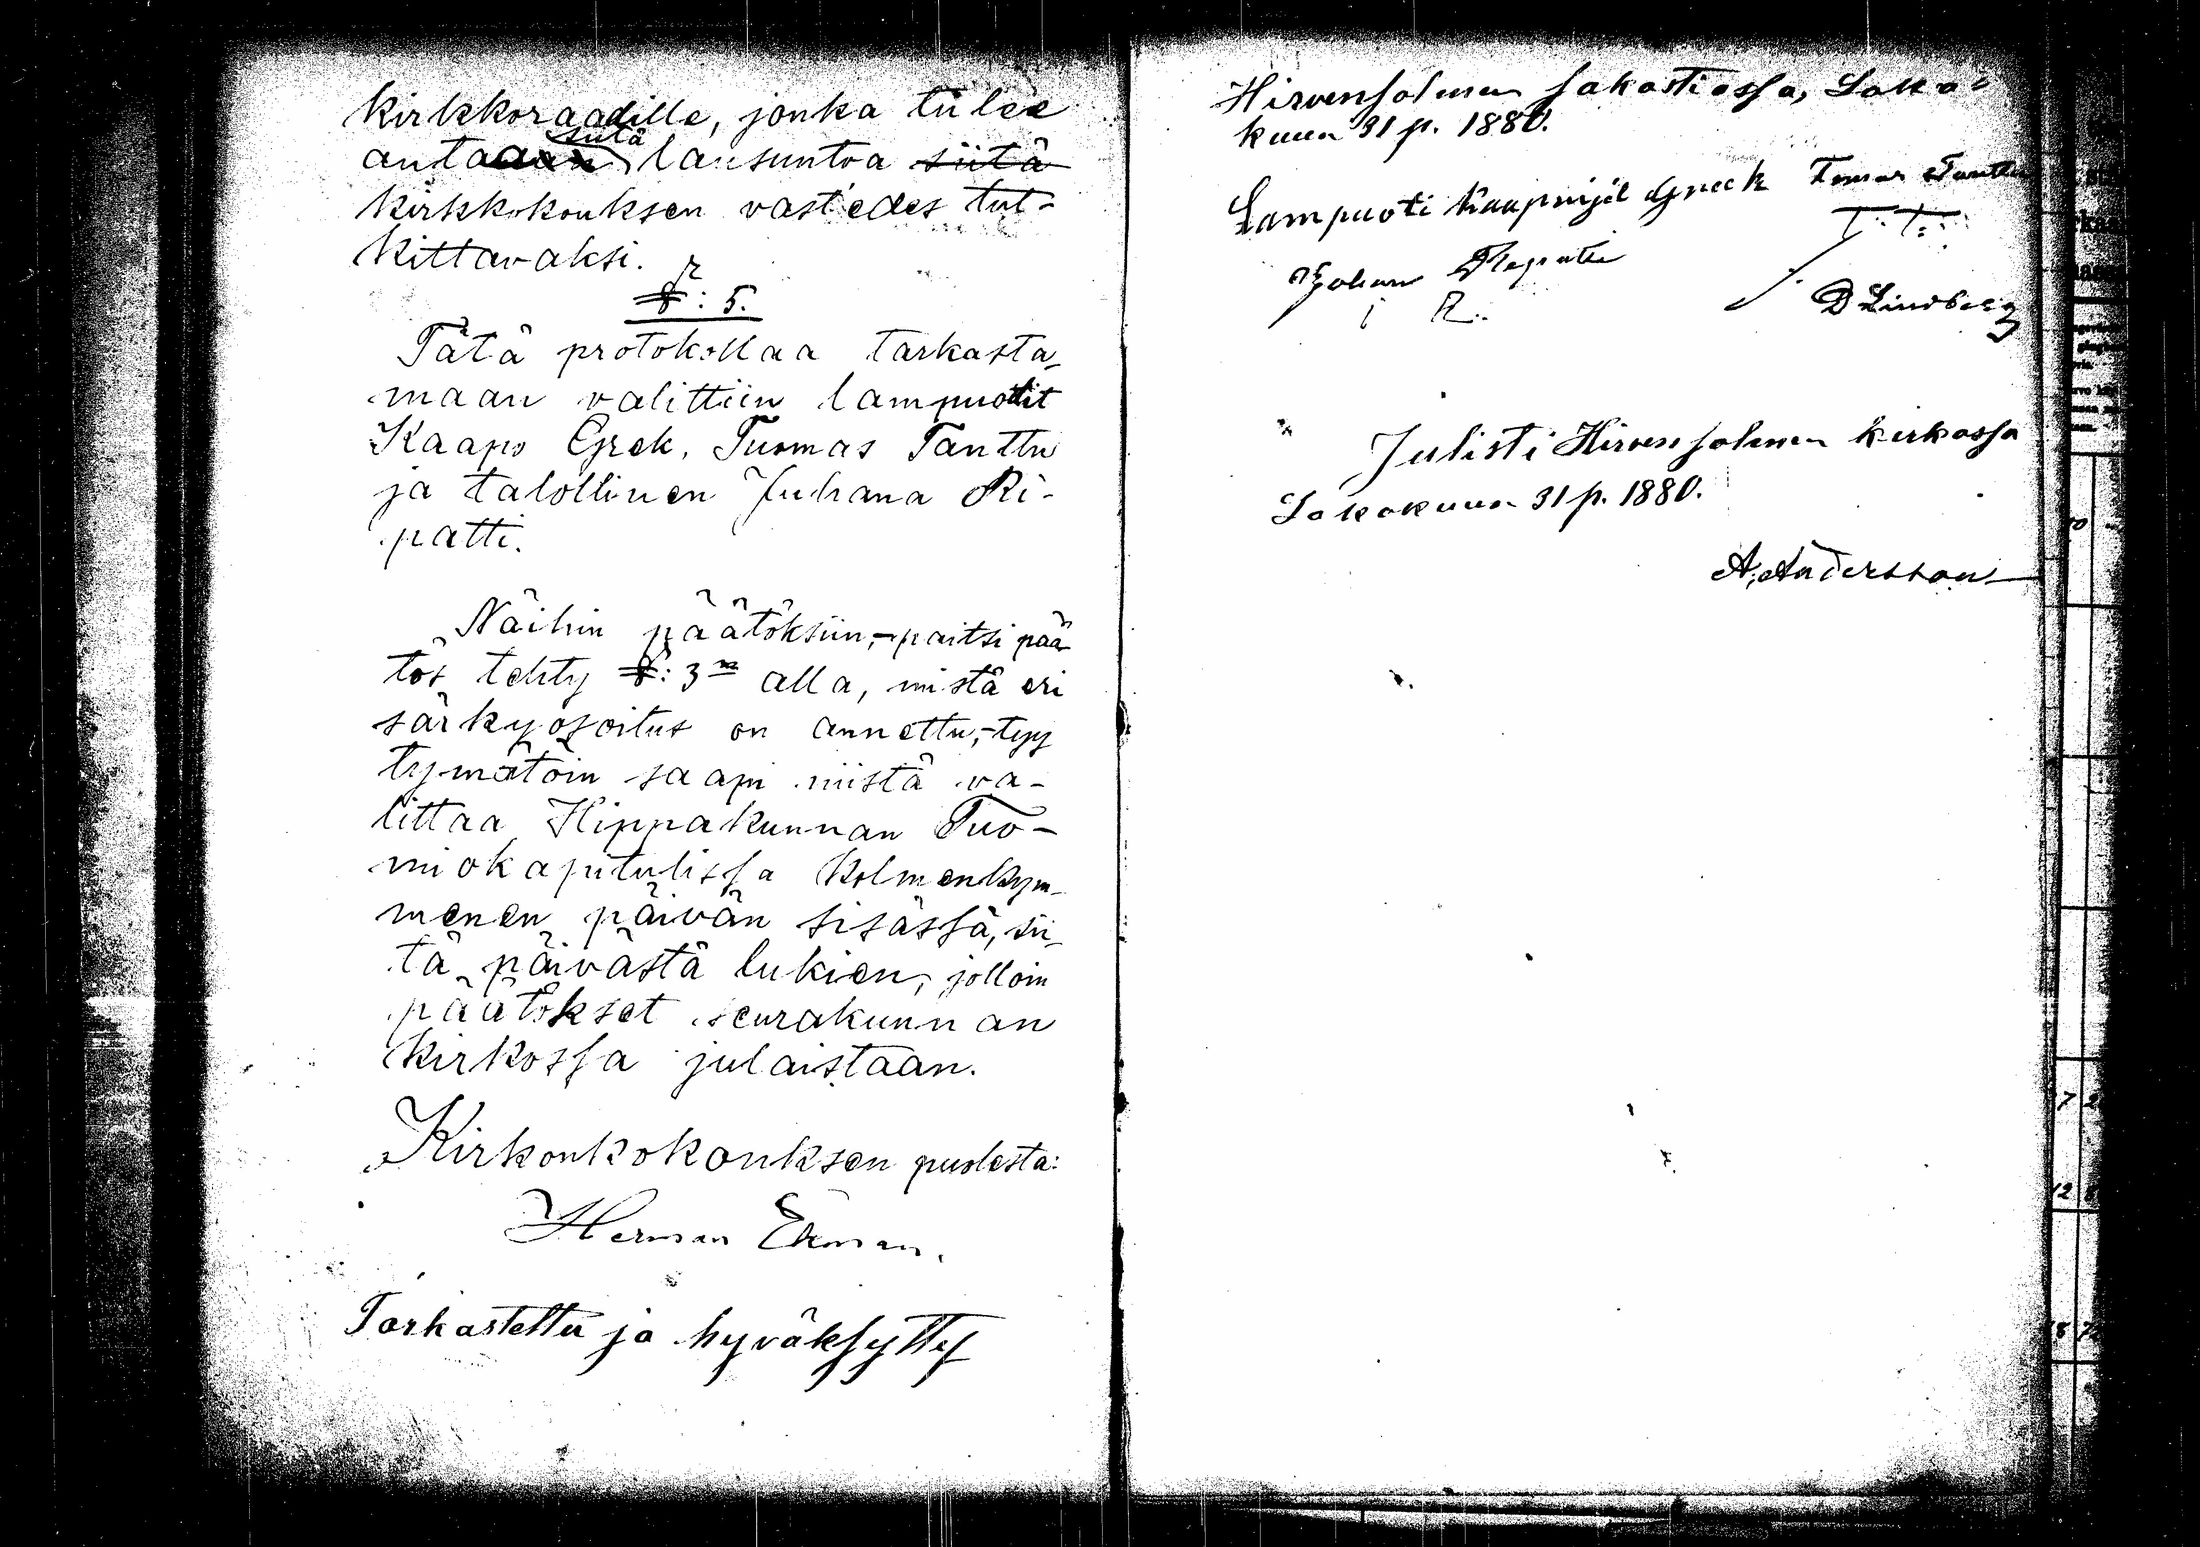 kirkkoraadille, jonka tulee
siitä
antaa lausuntoa siitä
kirkkokouksen vastedes tut-
kittavaksi.
§: 5.
Tätä protokollaa tarkasta-
maan valittiin lampuotit
Kaapo Grek, Tuomas Tanttu
ja talollinen Juhana Ri-
patti.
Näihin päätöksiin,-paitsi pää
tös tehty §: 3n alla, mistä eri
särkyosoitus on annettu,-tyy
tymätöin saapi niistä va-
littaa Hippakunnan Tuo-
miokapitulissa kolmenkym-
menen päivän sisässä, sii-
tä päivästä lukien, jolloin
päätökset seurakunnan
kirkossa julaistaan.
Kirkonkokouksen puolesta:
Herman Ekman.
Tarkastettu ja hyväksytty
Hirvensalmen sakastiossa, Loka-
kuun 31 p. 1880.
Lampuoti Kaapri Greck Tomas Tanttu
T. T.
Johan Repatti
R.
D Lindberg
Julisti Hirvensalmen kirkossa
Lokakuun 31 p. 1880.
A. Andersson